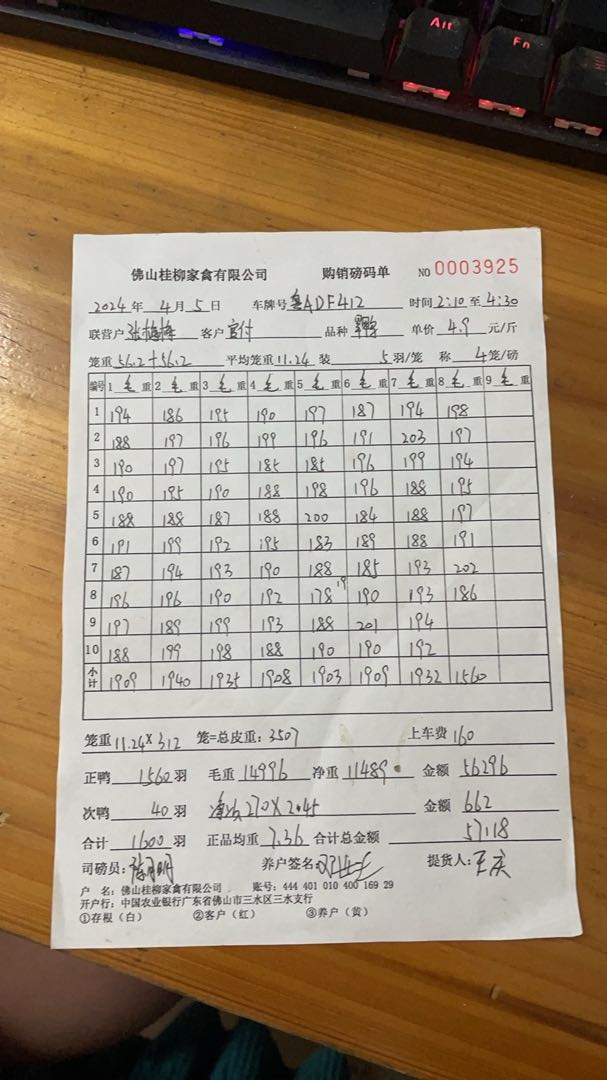 Alt
Fn
佛山桂柳家禽有限公司 购销磅码单 NO 0003925
2024 年 4 月 5 日 车牌号 粤ADF412 时间 2:10 至 4:30
联营户 客户 品种 单价 4.9 元/斤
笼重 56.2+56.2 平均笼重 11.24 装 5 羽/笼 称 4 笼/磅
编号 1 毛 重 2 毛 重 3 毛 重 4 毛 重 5 毛 重 6 毛 重 7 毛 重 8 毛 重 9 重
1 194 186 195 190 197 187 194 198
2 188 197 196 199 196 191 203 197
3 190 197 195 185 185 196 199 194
4 190 195 190 188 198 196 188 195
5 188 188 187 188 200 184 188 197
6 191 199 192 195 183 189 188 191
7 187 194 193 190 188 185 193 202
8 196 196 190 192 178 19 190 193 186
9 197 189 199 193 188 201 194
10 188 199 198 188 190 190 192
小计 1909 1940 1935 1908 1903 1909 1932 1560
笼重 11.24×312 笼=总皮重: 3507 上车费 160
正鸭 1560 羽 毛重 14996 净重 11489 金额 56296
次鸭 40 羽 270×2.45 金额 662
合计 1600 羽 正品均重 7.36 合计总金额 57118
司磅员: 养户签名: 提货人: 王庆
户 名: 佛山桂柳家禽有限公司 账号: 444 401 010 400 169 29
开户行: 中国农业银行广东省佛山市三水区三水支行
①存根(白) ②客户(红) ③养户(黄)